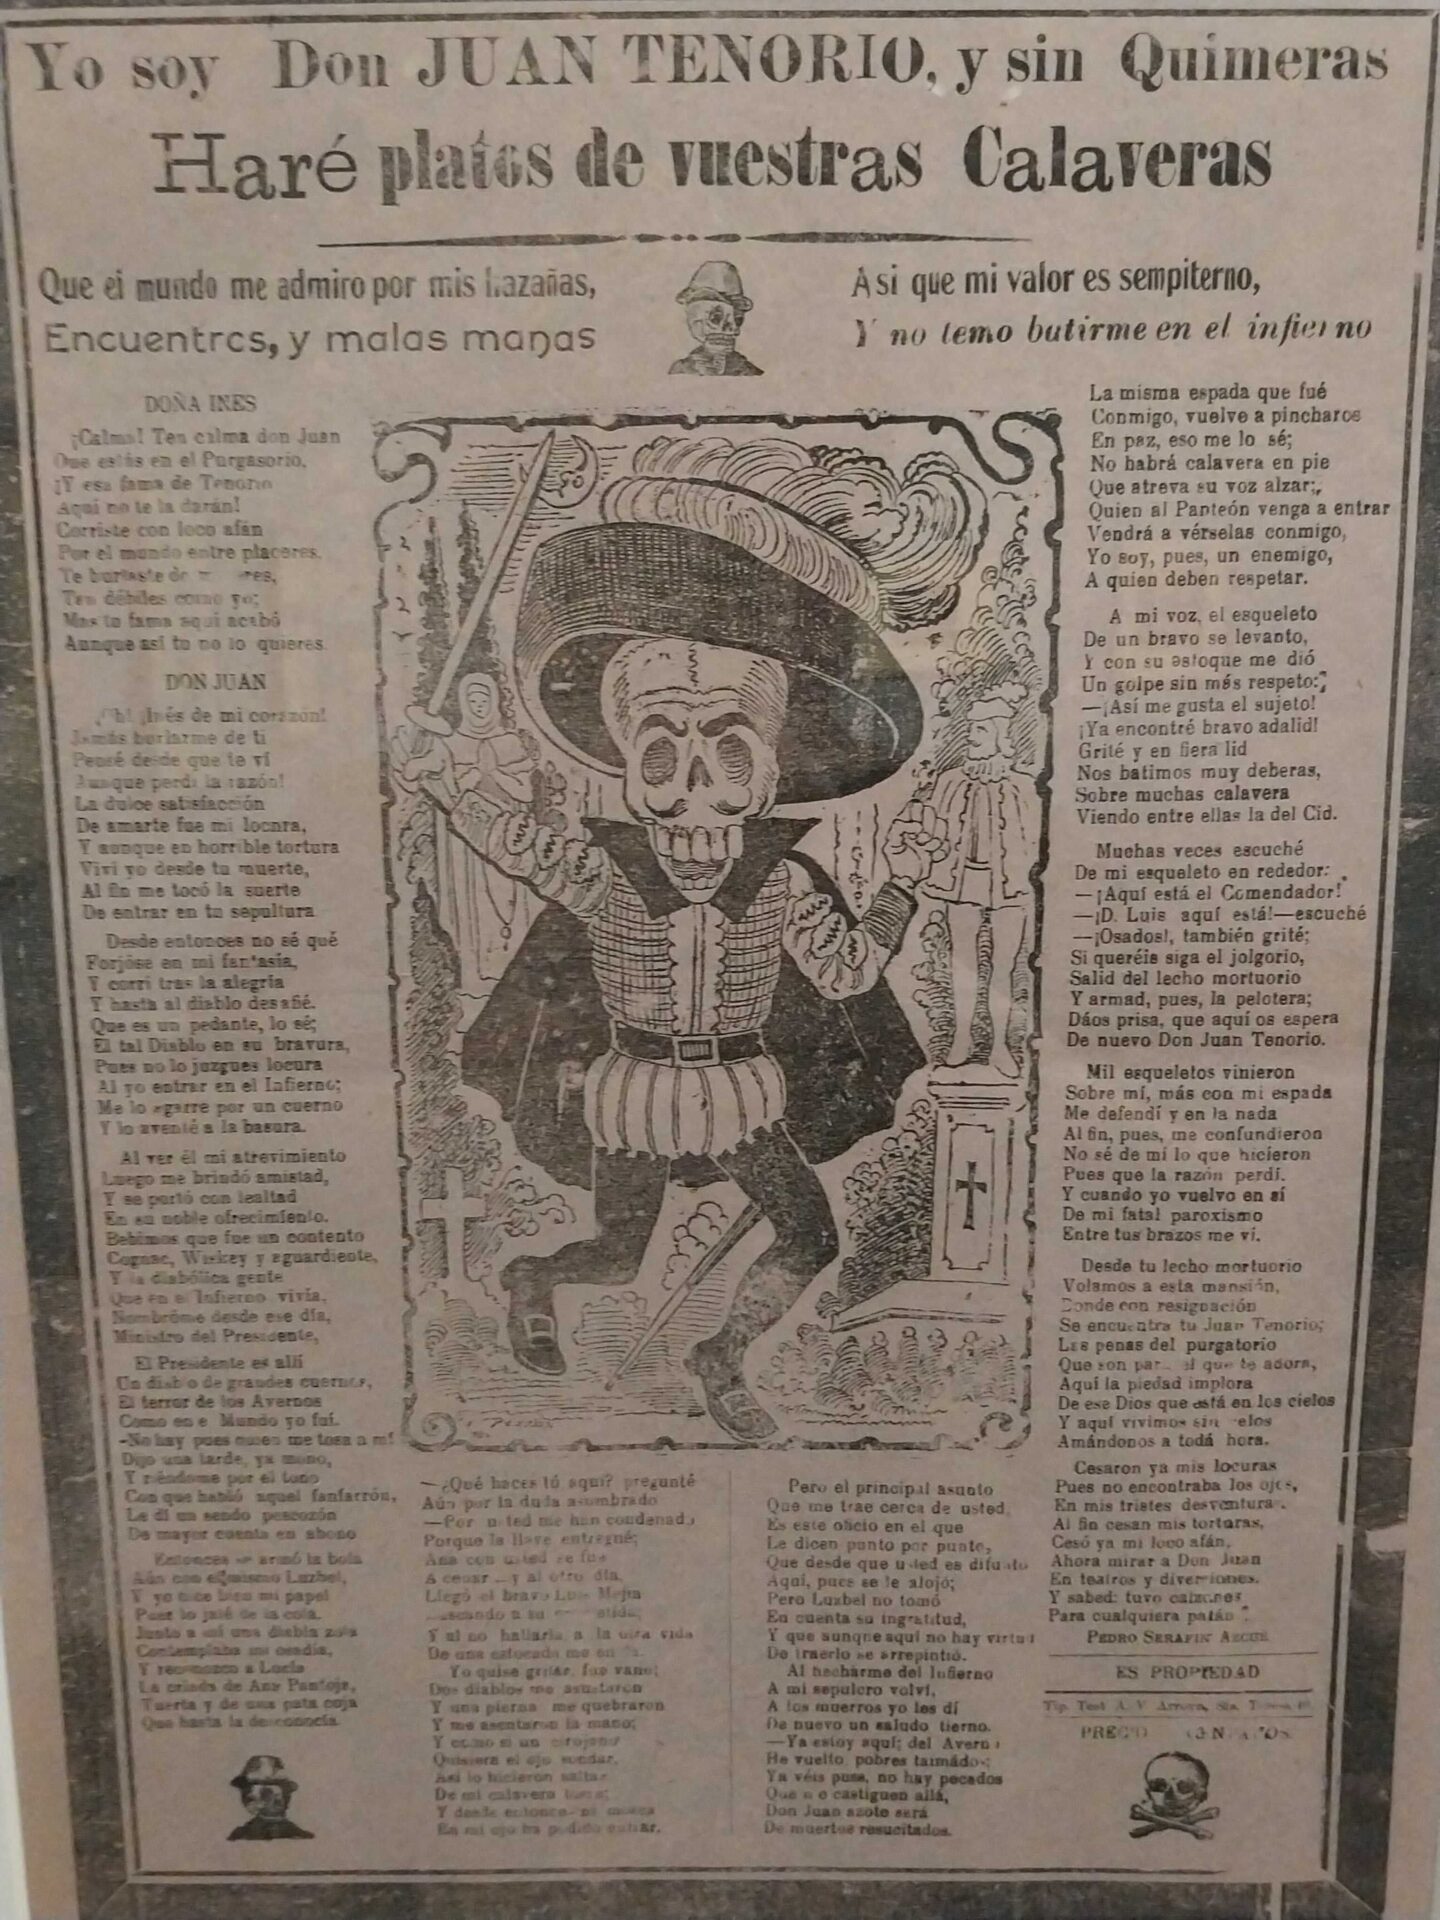 Yo soy Don JUAN TENORIO, y sin Quimeras
Haré platos de vuestras Calaveras
Que el mundo me admiro por mis hazañas,
Encuentros, y malas mañas
Asi que mi valor es sempiterno,
Y no temo batirme en el infierno
DOÑA INES
¡Calma! Ten calma don Juan
Que estás en el Purgasorio,
¡Y esa fama de Tenorio
Aquí no te la darán!
Corriste con loco afán
Por el mundo entre placeres,
Te burlaste de
Tan débiles como yo;
Mas tu fama aquí acabó
Aunque así tu no lo quieres.
DON JUAN
¡Oh! ¡Inés de mi corazón!
Jamás burlarme de ti
Pensé desde que te ví
Aunque perdí la razón!
La dulce satisfacción
De amarte fue mi locura,
Y aunque en horrible tortura
Viví yo desde tu muerte,
Al fin me tocó la suerte
De entrar en tu sepultura
Desde entonces no sé qué
Forjóse en mi fantasía,
Y corrí tras la alegría
Y hasta al diablo desafié.
Que es un pedante, lo sé;
El tal Diablo en su bravura,
Pues no lo juzgues locura
Al yo entrar en el Infierno;
Me lo agarre por un cuerno
Y lo aventé a la basura.
Al ver él mi atrevimiento
Luego me brindó amistad,
Y se portó con lealtad
En su noble ofrecimiento.
Bebimos que fue un contento
Cognac, Wiskey y aguardiente,
Y la diabólica gente
Que en el Infierno vivía,
Nombróme desde ese día,
Ministro del Presidente,
El Presidente es allí
Un diablo de grandes cuernos,
El terror de los Avernos
Como en e Mundo yo fuí.
-No hay pues quien me tosa a mí
Dijo una tarde, ya mono,
Y riéndome por el tono
Con que habló aquel fanfarrón,
Le dí un sendo pescozón
De mayor cuenta en abono
Entonces se armó la bola
Aún con el mismo Luzbel,
Y yo hice bien mi papel
Pues lo jalé de la cola.
Junto a mí una diabla sola
Contemplaba mi osadía,
Y reconozco a Lucía
La criada de Ana Pantoja,
Tuerta y de una pata coja
Que hasta la desconocía
—¿Qué haces tú aquí? pregunté
Aún por la duda asombrado
—Por usted me han condenado
Porque la llave entregué;
Ana con usted se fue
A cenar... y al otro día,
Llegó el bravo Luis Mejía
Buscando a su
Y al no hallarla, a la otra vida
De una estocada me
Yo quise gritar, fue vano;
Dos diablos me asustaron
Y una pierna me quebraron
Y me asentaron la mano;
Y como si un cirujano
Quisiera el ojo sondar,
Así lo hicieron saltar
De mi calavera
Y desde entonces ni mosca
En mi ojo ha podido entrar.
Pero el principal asunto
Que me trae cerca de usted,
Es este oficio en el que
Le dicen punto por punto,
Que desde que usted es difunto
Aquí, pues se le alojó;
Pero Luxbel no tomó
En cuenta su ingratitud,
Y que aunque aquí no hay virtud
De traerlo se arrepintió.
Al hecharme del Infierno
A mi sepulcro volví,
A los muerros yo les dí
De nuevo un saludo tierno.
—Ya estoy aquí; del Averno
He vuelto, pobres taimados;
Ya véis pues, no hay pecados
Que no castiguen allá,
Don Juan azote será
De muertos resucitados.
La misma espada que fué
Conmigo, vuelve a pincharos
En paz, eso me lo sé;
No habrá calavera en pie
Que atreva su voz alzar;
Quien al Panteón venga a entrar
Vendrá a vérselas conmigo,
Yo soy, pues, un enemigo,
A quien deben respetar.
A mi voz, el esqueleto
De un bravo se levanto,
Y con su estoque me dió
Un golpe sin más respeto:
—¡Así me gusta el sujeto!
¡Ya encontré bravo adalid!
Grité y en fiera lid
Nos batimos muy deberas,
Sobre muchas calavera
Viendo entre ellas la del Cid.
Muchas veces escuché
De mi esqueleto en rededor:
—¡Aquí está el Comendador!
—¡D. Luis aquí está!—escuché
—¡Osados!, también grité;
Si queréis siga el jolgorio,
Salid del lecho mortuorio
Y armad, pues, la pelotera;
Dáos prisa, que aquí os espera
De nuevo Don Juan Tenorio.
Mil esqueletos vinieron
Sobre mí, más con mi espada
Me defendí y en la nada
Al fin, pues, me confundieron
No sé de mí lo que hicieron
Pues que la razón perdí.
Y cuando yo vuelvo en sí
De mi fatal paroxismo
Entre tus brazos me ví.
Desde tu lecho mortuorio
Volamos a esta mansión,
Donde con resignación
Se encuentra tu Juan Tenorio;
Las penas del purgatorio
Que son para el que te adora,
Aquí la piedad implora
De ese Dios que está en los cielos
Y aquí vivimos sin celos
Amándonos a todá hora.
Cesaron ya mis locuras
Pues no encontraba los ojos,
En mis tristes desventuras.
Al fin cesan mis torturas,
Cesó ya mi loco afán,
Ahora mirar a Don Juan
En teatros y diversiones.
Y sabed: tuvo calzones
Para cualquiera patán
PEDRO SERAFIN
ES PROPIEDAD
Tip. Test. A. V. Arroyo, Sta. Teresa
PRECIO CENTAVOS